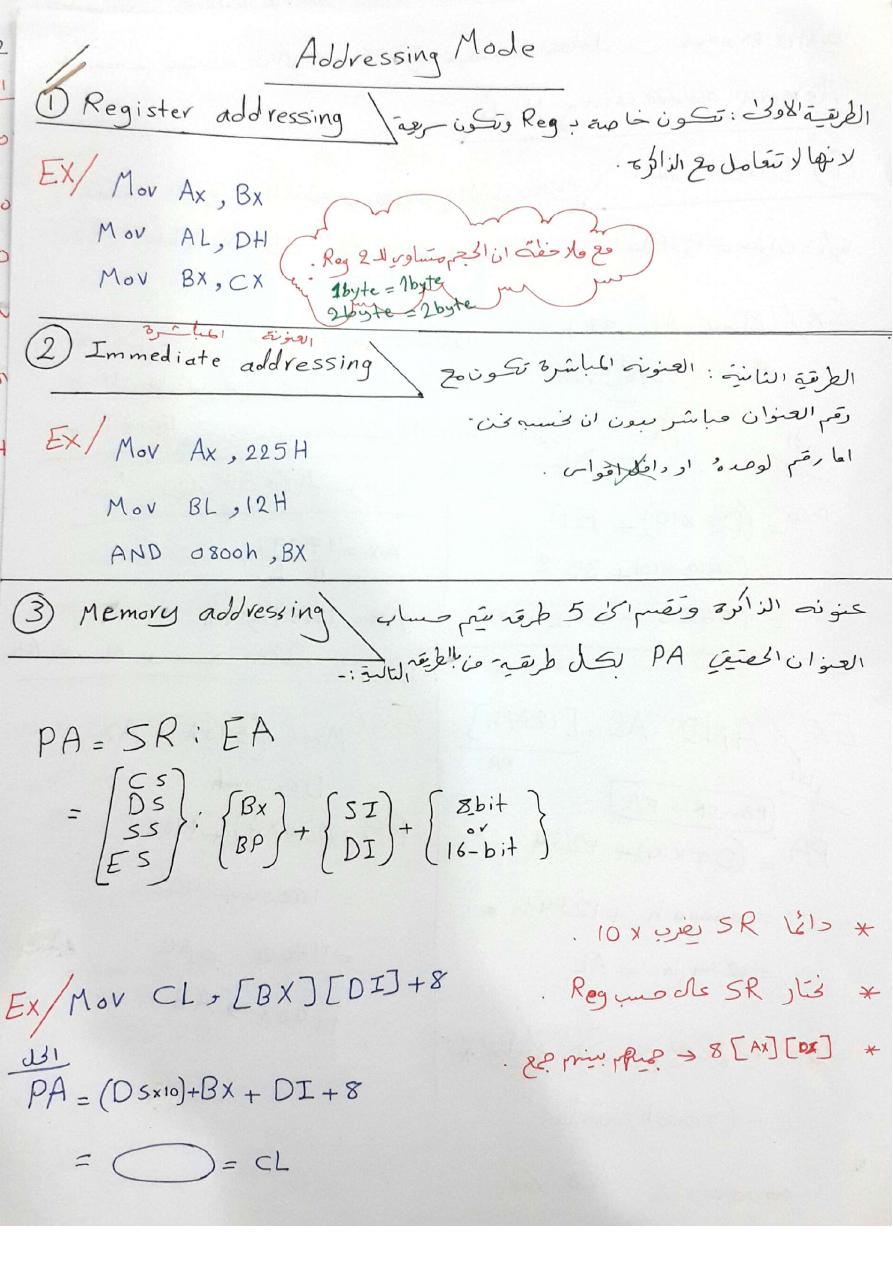 Addressing Mode
① Register addressing
الطريقة الاولى : تكون خاصة بـ Reg وتكون سريعة
لانها لا تتعامل مع الذاكرة .
EX/ Mov Ax , Bx
Mov AL , DH
Mov BX , CX
مع ملاحظة ان الحجم متساوي لـ 2 Reg .
1byte = 1byte
2byte = 2byte
العنونة المباشرة
② Immediate addressing
الطريقة الثانية : العنونه المباشرة تكون مع
رقم العنوان مباشر بدون ان نحسبه نحن .
اما رقم لوحدهُ او داخل اقواس .
Ex/ Mov Ax , 225H
Mov BL , 12H
AND 0800h , BX
③ Memory addressing
عنونه الذاكرة وتقسم الى 5 طرق يتم حساب
العنوان الحقيقي PA بكل طريقة من بالطريقه التالية :-
PA = SR : EA
= [CS DS SS ES} : {Bx BP} + {SI DI} + {8bit or 16-bit}
* دائما SR يضرب x 10 .
* نختار SR على حسب Reg .
* 8 [AX] [DX] → جميعهم بينهم جمع .
Ex/ Mov CL , [BX] [DI] + 8
الحل
PA = (DSx10) + Bx + DI + 8
= = CL